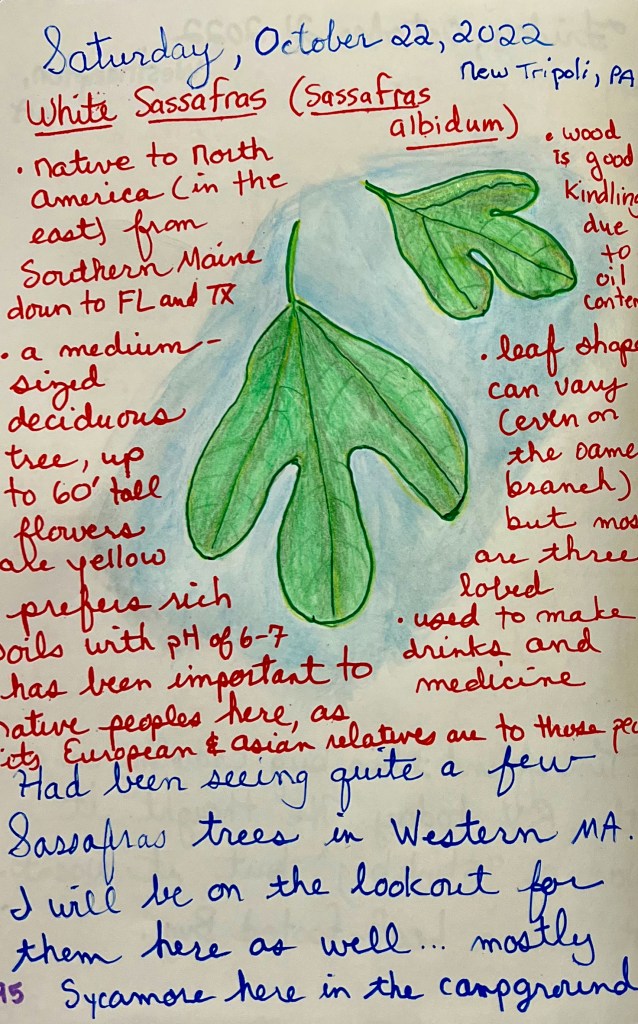 Saturday, October 22, 2022
New Tripoli, PA
White Sassafras (Sassafras
albidum)
• native to North
America (in the
east) from
Southern Maine
down to FL and TX
• a medium-
sized
deciduous
tree, up
to 60' tall
flowers
are yellow
prefers rich
soils with pH of 6-7
has been important to
native peoples here, as
its European & Asian relatives are to those peo
• wood
is good
kindling
due
to
oil
conten
• leaf shape
can vary
(even on
the same
branch)
but mos
are three
lobed
• used to make
drinks and
medicine
Had been seeing quite a few
Sassafras trees in Western MA.
I will be on the lookout for
them here as well... mostly
Sycamore here in the campground
95